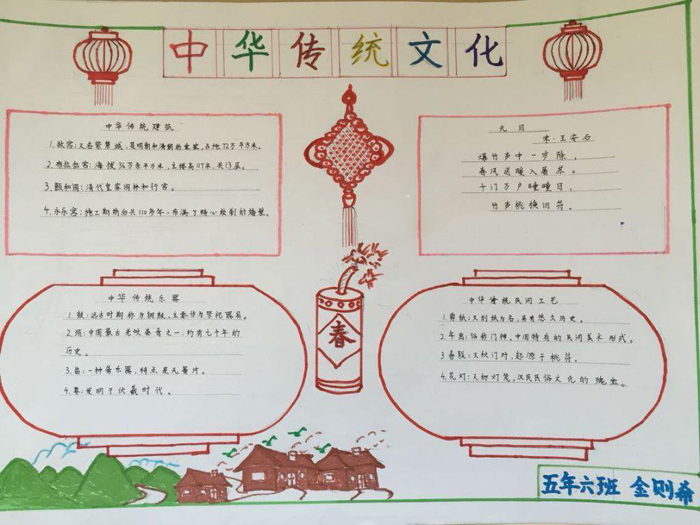 中华传统文化
中华传统建筑
1.故宫:又名紫禁城,是明朝和清朝的皇家,占地72万平方米。
2.布拉拉宫:海拔36万余平方米,主楼高117米,共13层。
3.颐和园:清代皇家园林和行宫。
4.永乐宫:施工期前后共110多年,布满了精心绘制的墙壁。
元日
宋·王安石
爆竹声中一岁除,
春风送暖入屠苏。
千门万户曈曈日,
竹声桃换旧符。
春
中华传统乐器
1.鼓:远古时期称为铜鼓,主要作为祭祀器具。
2.埙:中国最古老吹奏音之一,约有七千年的
历史。
3.笛:一种骨乐器,特点是无簧片。
4.琴:发明于伏羲时代。
中华传统民间工艺
1.剪纸:又刻纸为名,具有悠久历史。
2.年画:俗称门神,中国特有的民间美术形式。
3.春联:又秋门对,起源于桃符。
4.花灯:又称灯笼,汉民民俗文化的瑰宝。
五年六班 金则希